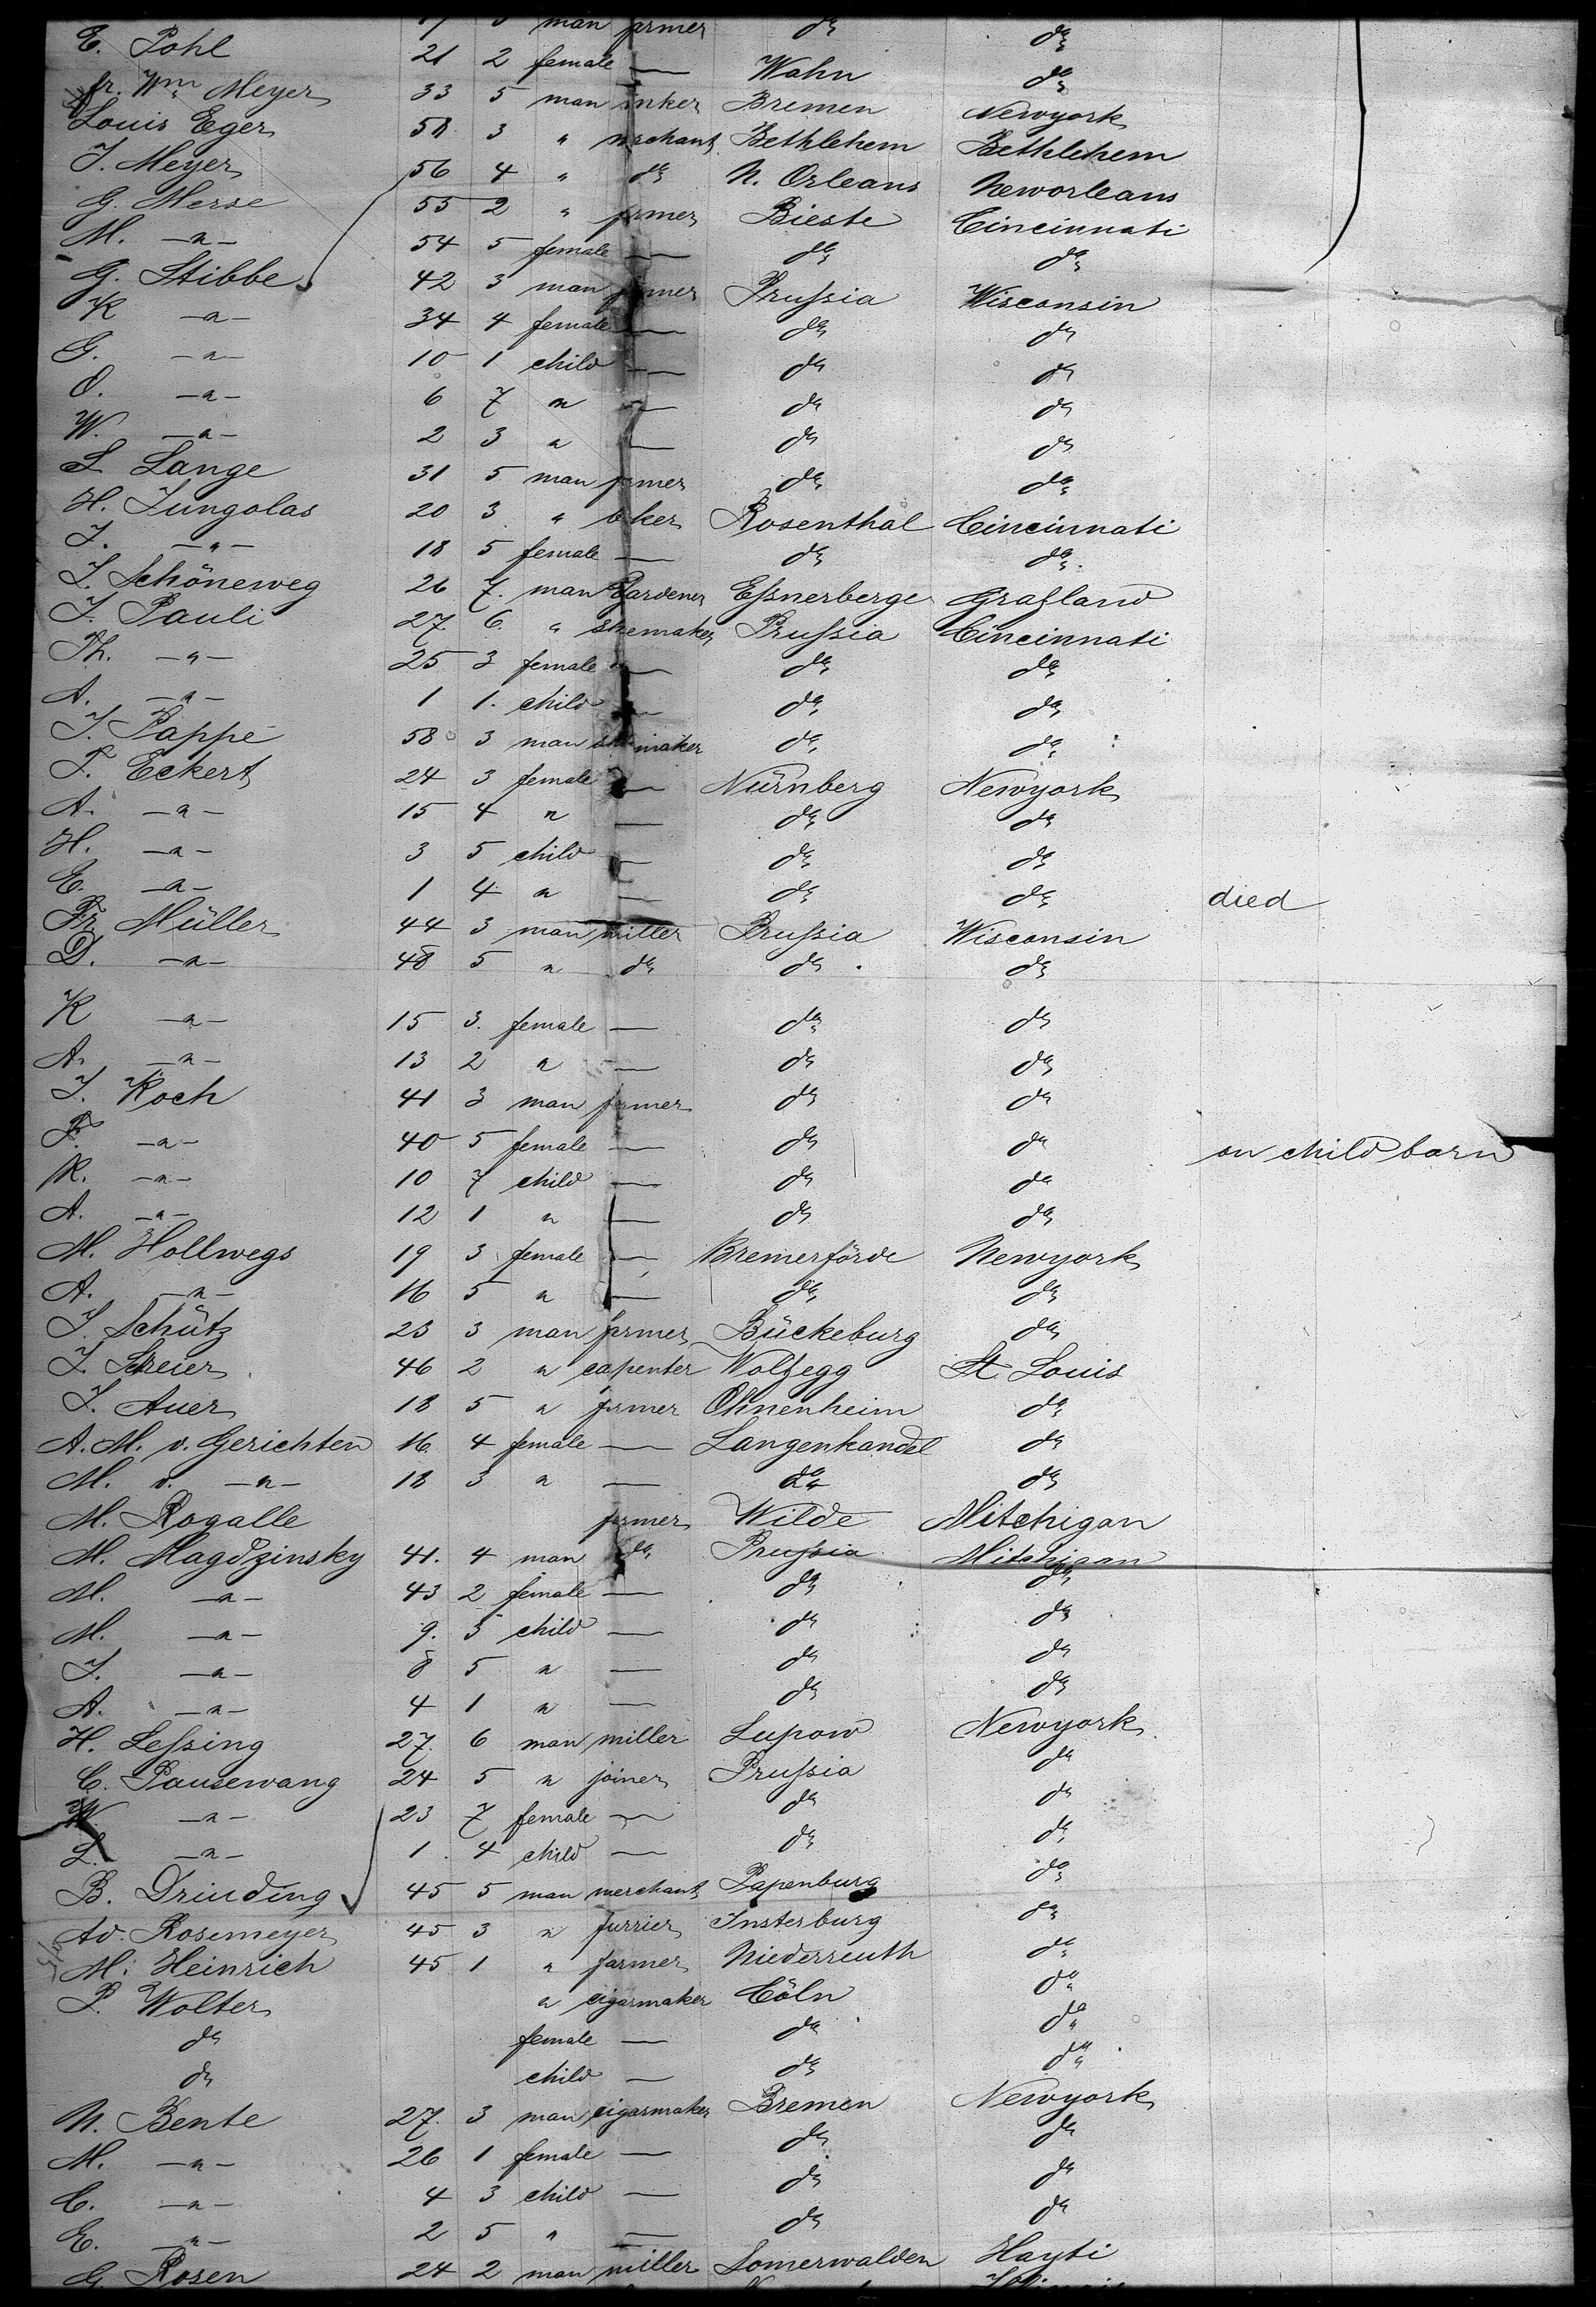 man farmer do do
E. Pohl 21 2 female — Wahn do
fr. Wm Meyer 33 5 man inker Bremen Newyork
Louis Eger 58 3 " merchant Bethlehem Bethlehem
J. Meyer 56 4 " do N. Orleans Neworleans
G. Merse 55 2 " farmer Bieste Cincinnati
M. —"— 54 5 female — do do
G. Stibbe 42 3 man farmer Prussia Wisconsin
K —"— 34 4 female — do do
G. —"— 10 1 child — do do
O. —"— 6 7 " — do do
W. —"— 2 3 " — do do
L Lange 31 5 man farmer do do
H. Jungolas 20 3 " baker Rosenthal Cincinnati
J. —"— 18 5 female — do do
J. Schöneweg 26 7. man Gardener Essnerberge Grasland
J. Pauli 27. 6. " shemaker Prussia Cincinnati
Th. —"— 25 3 female — do do
A. —"— 1 1. child — do do
J. Pappe 58 3 man shomaker do do
F. Eckert 24 3 female — Nürnberg Newyork
A. —"— 15 4 " — do do
H. —"— 3 5 child — do do
E. —"— 1 4 " — do do died
Fr. Müller 44 3 man miller Prussia Wisconsin
D. —"— 48 5 " do do do
K —"— 15 3. female — do do
A. —"— 13 2 " — do do
J. Koch 41 3 man farmer do do
F. —"— 40 5 female — do do on child born
K. —"— 10 7 child — do do
A. —"— 12 1 " — do do
M. Hollwegs 19 3 female — Bremerförde Newyork
A. —"— 16 5 " — do do
J. Schütz 23 3 man farmer Bückeburg do
J. Schreier 46 2 " capenter Wolfegg St Louis
J. Auer 18 5 " farmer Ohnenheim do
A. M. v. Gerichten 16. 4 female — Langenkandel do
M. v. —"— 18 3 " — do do
M. Rogalle farmer Wilde Mitchigan
M. Magdzinsky 41. 4 man do Prussia Mitchigan
M. —"— 43 2 female — do do
M. —"— 9. 3 child — do do
J. —"— 8 5 " — do do
A. —"— 4 1 " — do do
H. Lessing 27. 6 man miller Lupow Newyork
C. Pausewang 24 5 " joiner Prussia do
W —"— 23 7 female — do do
L. —"— 1. 4 child — do do
B. Drinding 45 5 man merchant Papenburg do
Ad. Rosemeyer 45 3 " furrier Insterburg do
M. Heinrich 45 1 " farmer Niederreuth do
P. Wolter " cigarmaker Cöln do
do female — do do
do child — do do
N. Bente 27. 3 man cigarmaker Bremen Newyork
M. —"— 26 1 female — do do
C. —"— 4 3 child — do do
E. —"— 2 5 " — do do
G Rosen 24 2 man miller Somerwalden Hayti